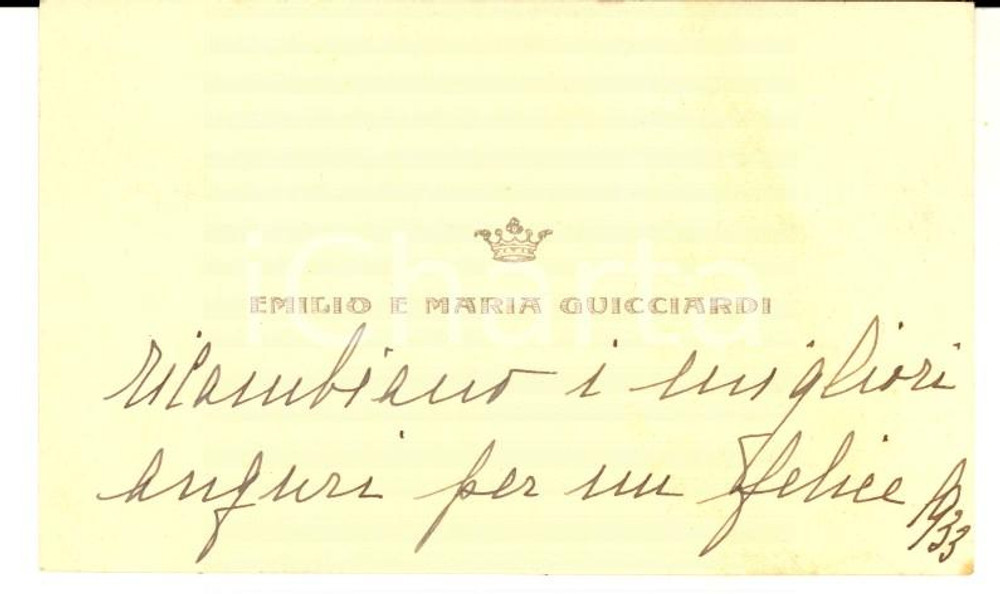 EMILIO E MARIA GUICCIARDI
iCharta
ricambiano i migliori
auguri per un felice 1933